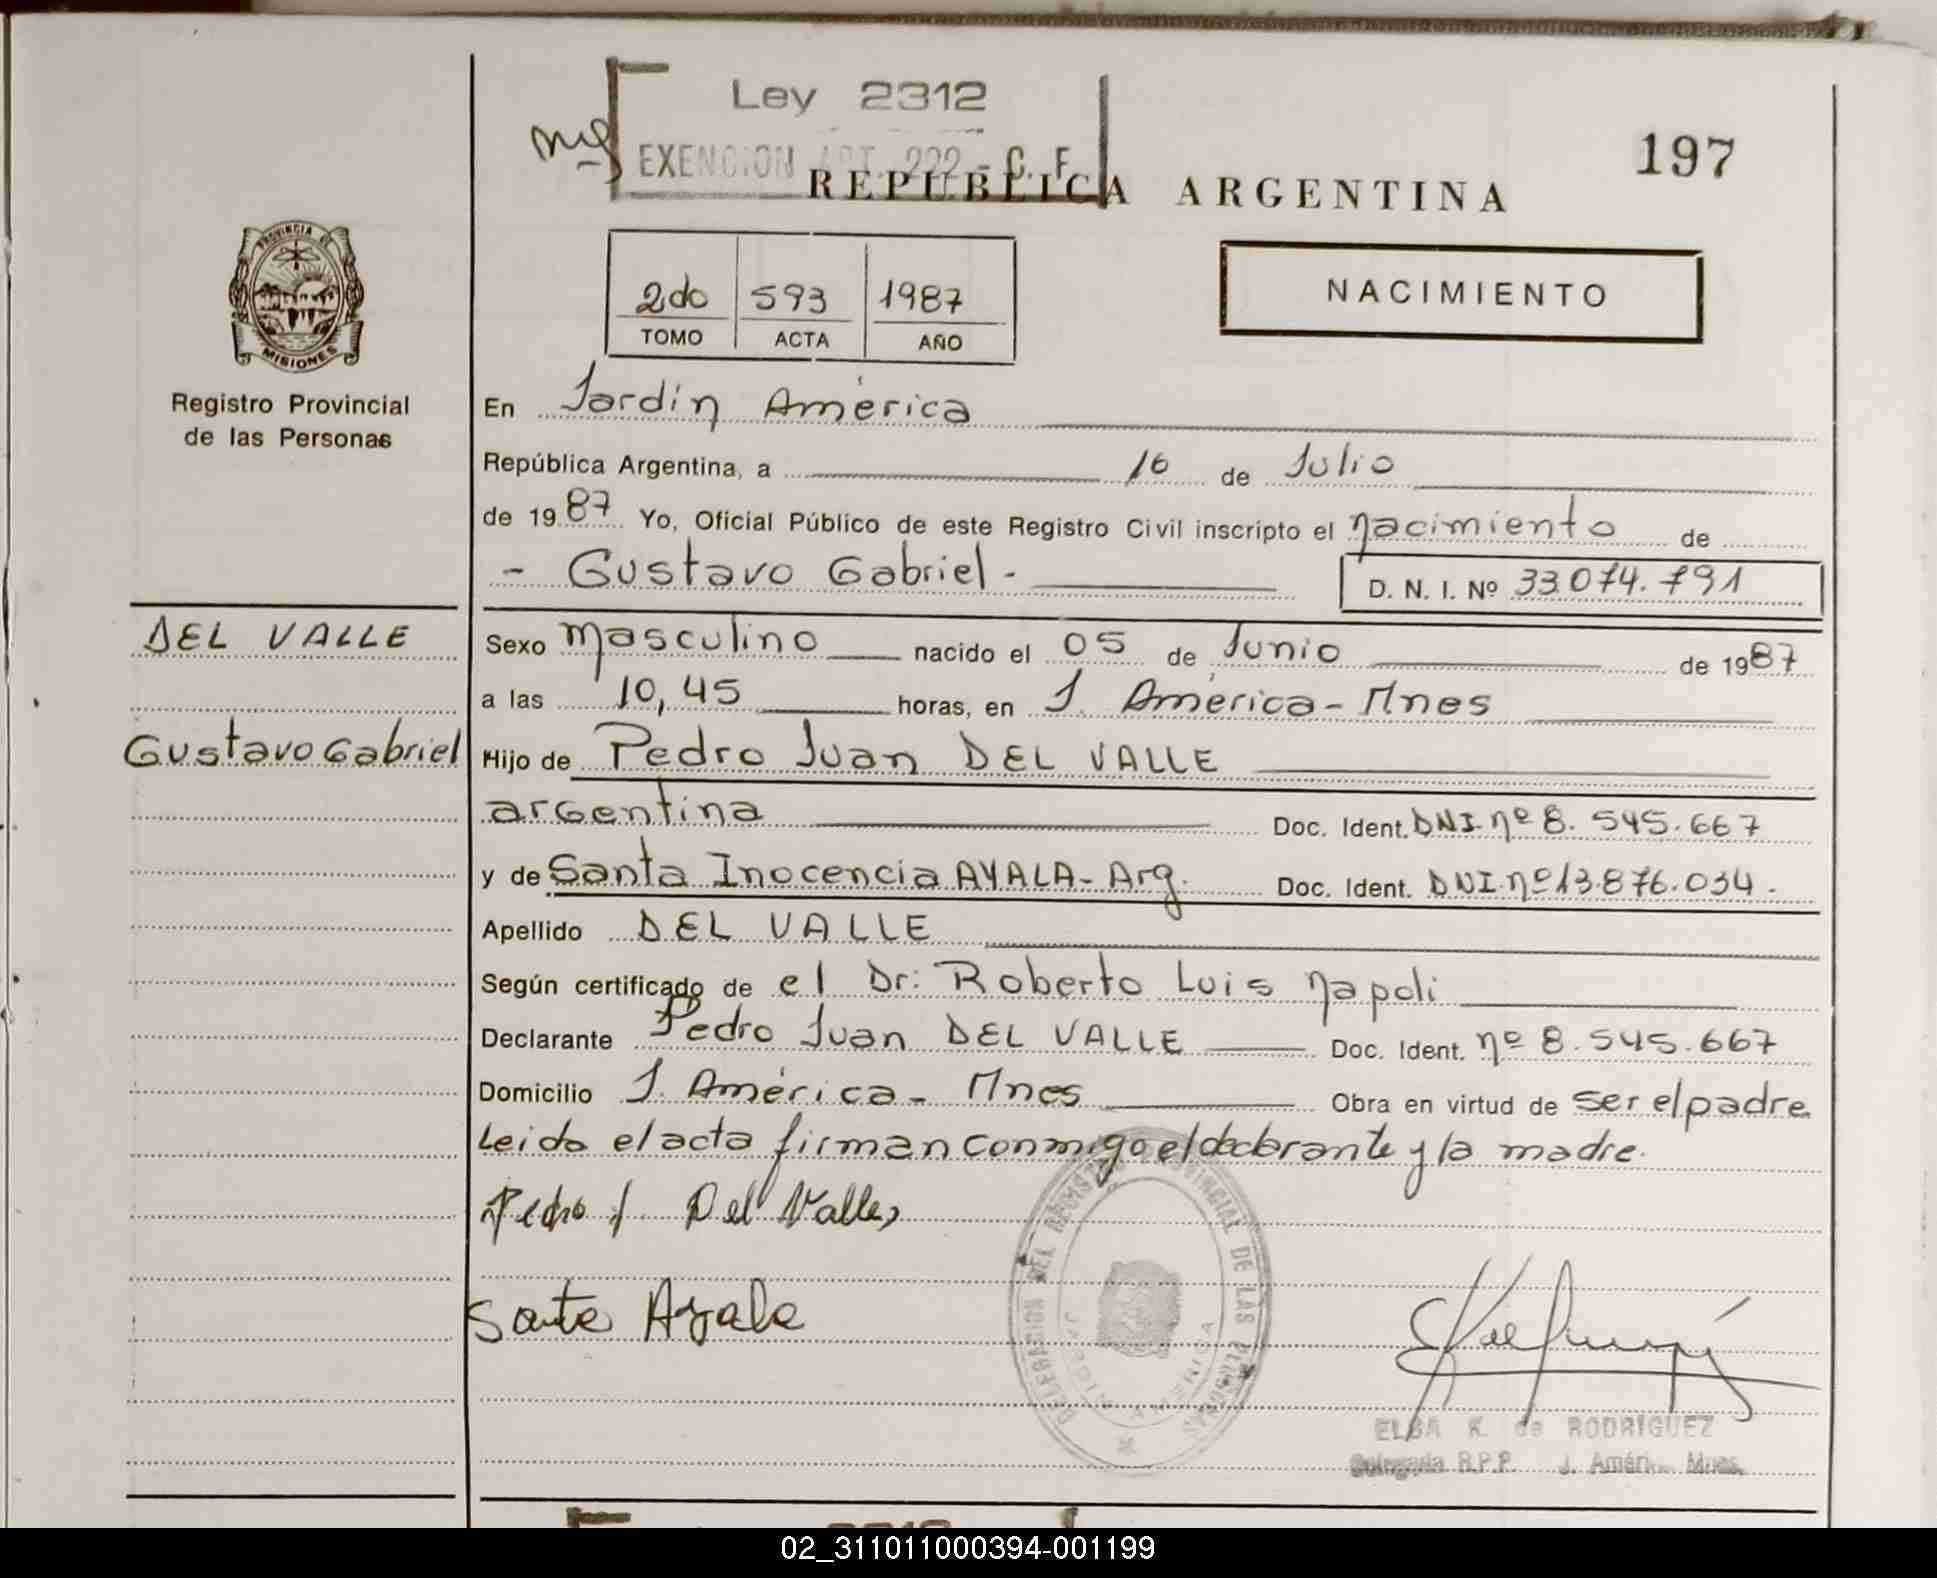 Ley 2312
EXENCION ART. 222 - C. F.
REPUBLICA ARGENTINA
197
2do 593 1987
TOMO ACTA AÑO
NACIMIENTO
PROVINCIA DE
MISIONES
Registro Provincial
de las Personas
En Jardín América
República Argentina, a 16 de Julio
de 1987 Yo, Oficial Público de este Registro Civil inscripto el nacimiento de
- Gustavo Gabriel -
D. N. I. Nº 33.074.791
DEL VALLE
Gustavo Gabriel
Sexo masculino nacido el 05 de Junio de 1987
a las 10,45 horas, en J. América - Mnes
Hijo de Pedro Juan DEL VALLE
argentina Doc. Ident. DNI. nº 8.545.667
y de Santa Inocencia AYALA - Arg. Doc. Ident. DNI. nº 13.876.034.
Apellido DEL VALLE
Según certificado de el Dr: Roberto Luis Napoli
Declarante Pedro Juan DEL VALLE Doc. Ident. nº 8.545.667
Domicilio J. América - Mnes Obra en virtud de ser el padre
Leida el acta firman conmigo el declarante y la madre.
Pedro J. Del Valle
Santa Ayala
DELEGACION DEL REGISTRO PROVINCIAL DE LAS PERSONAS
JARDIN AMERICA
ELBA K. de RODRIGUEZ
Delegada R.P.P. J. Améri Mnes.
02_311011000394-001199